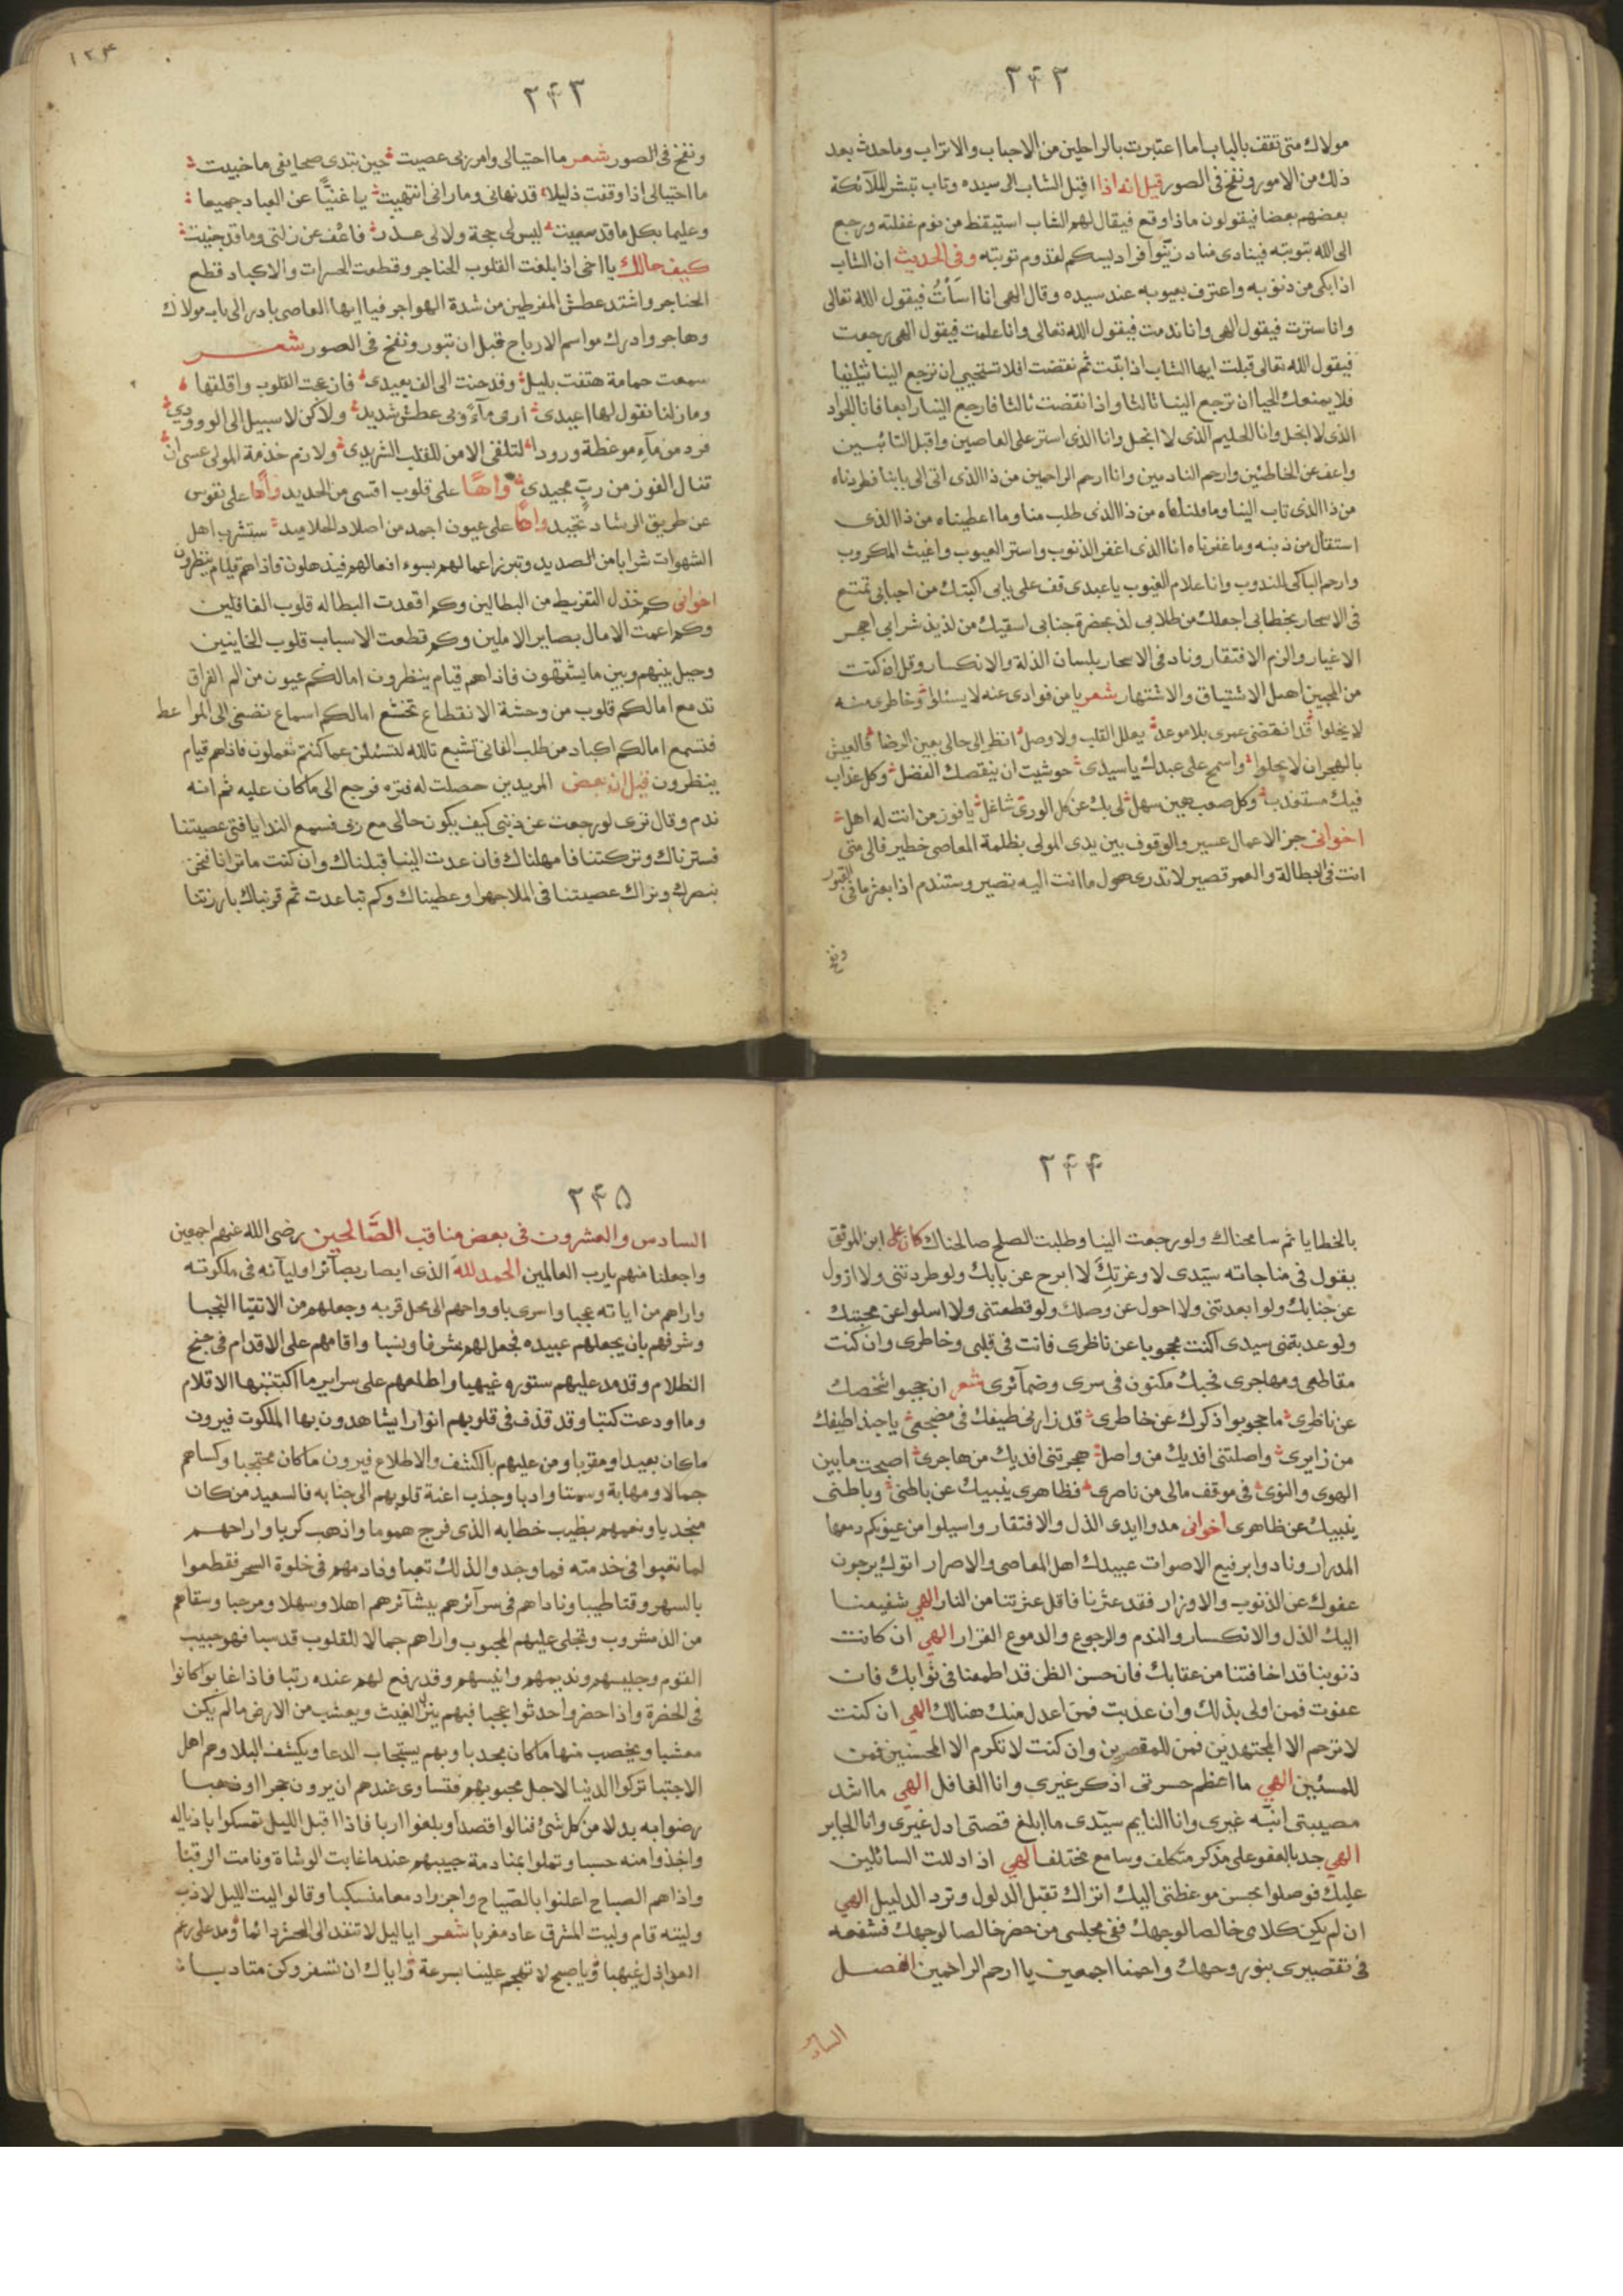 ٢٤٢
مولاك متى تقف بالباب اما اعتبرت بالراحلين من الاحباب والاتراب وماحدث بعد
ذلك من الامور ونفخ فى الصور قيل انه اذا اقبل الشاب الى سيده وتاب تبشر الملآئكة
بعضهم بعضا فيقولون ماذا وقع فيقال لهم الشاب استيقظ من نوم غفلته ورجع
الى الله بتوبته فينادى مناد زيّنوا فراديسكم لقدوم توبته وفى الحديث ان الشاب
اذا بكى من ذنوبه واعترف بعيوبه عند سيده وقال الهى انا اسَأتُ فيقول الله تعالى
وانا سترت فيقول الهى وانا ندمت فيقول الله تعالى وانا علمت فيقول الهى رجعت
فيقول الله تعالى قبلت ايها الشاب اذا تبت ثم نقضت افلا تستحيى ان ترجع الينا ثانيا
فلا يمنعك الحيا ان ترجع الينا ثالثا واذا نقضت ثالثا فارجع الينا رابعا فانا الجواد
الذى لا ابخل وانا الحليم الذى لا اعجل وانا الذى استر على العاصين واقبل التائبين
واعف عن الخاطئين وارحم النادمين وانا ارحم الراحمين من ذا الذى اتى الى بابنا فطردناه
من ذا الذى تاب الينا وما قبلناه من ذا الذى طلب منا وما اعطيناه من ذا الذى
استقال من ذبنه وما غفرناه انا الذى اغفر الذنوب واستر العيوب واغيث المكروب
وارحم الباكى المندوب وانا علام الغيوب يا عبدى قف على بابى اكتبك من احبابى تمتع
فى الاسحار بخطابى اجعلك من طلابى لذ بحضرة جنابى اسقيك من لذيذ شرابى اهجر
الاغيار والزم الافتقار وناد فى الاسحار بلسان الذلة والانكسار وقل ان كنت
من المحبين اهل الاشتياق والاشتهار شعر يا من فوادى عنه لا يسئلوا وخاطرى منه
لا يخلوا قد انقضى عمرى بلا موعد يعلل القلب ولا وصل انظر الى حالى بعين الرضا فالعيش
بالهجران لا يحلوا واسمح على عبدك يا سيدى حوشيت ان ينقصك الفضل وكل عذاب
فيك مستعذب وكل صعب هين سهل لى بك عن كل الورى شاغل يا فوز من انت له اهل
اخوانى جز الاعمال عسير والوقوف بين يدى المولى بظلمة المعاصى خطير فالى متى
انت فى البطالة والعمر قصير لا تدرى حول ما انت اليه تصير وستندم اذا بعثر ما فى القبور
ونفخ
١٢٣
٢٤٣
ونفخ فى الصور شعر ما احتيالى وامر ربى عصيت حين تبدى صحايفى ما خبيت
ما احتيالى اذا وقفت ذليلا قد نهانى وما رانى انتهيت يا غنيّا عن العباد جميعا
وعليما بكل ما قد سعيت ليس لى حجة ولا لى عذر فاعف عن زلتى وما قد جنيت
كيف حالك يا اخى اذا بلغت القلوب الحناجر وقطعت الحسرات والاكباد قطع
الحناجر واشتد عطش المفرطين من شدة الهواجر فيا ايها العاصى بادر الى باب مولاك
وهاجر وادرك مواسم الارباح قبل ان تبور ونفخ فى الصور شعر
سمعت حمامة هتفت بليل وقد حنت الى الف بعيدى فازعجت القلوب واقلقتها
ومازلنا نقول لها اعيدى ارى مآءً وبى عطش شديد ولاكن لا سبيل الى الوروردى
فرد من مآء موعظة ورودا لتلقى الامن للقلب الشريدى ولازم خدمة المولى عسى ان
تنال الفوز من ربٍ مجيدى واهًا على قلوب اقسى من الحديد واهًا على نفوس
عن طريق الرشاد تحيد واهًا على عيون اجمد من اصلاد الجلاميد ستشرب اهل
الشهوات شرابا من الصديد وتبرز اعمالهم بسوء افعالهم فيذهلون فاذاهم قيام ينظرون
اخوانى كم خذل التفريط من البطالين وكم اقعدت البطاله قلوب الغافلين
وكم اعمت الامال بصاير الاملين وكم قطعت الاسباب قلوب الخاينين
وحيل بينهم وبين ما يشتهون فاذاهم قيام ينظرون امالكم عيون من الم الفراق
تدمع امالكم قلوب من وحشة الانقطاع تخشع امالكم اسماع تصغى الى المواعظ
فتسمع امالكم اكباد من طلب الفانى تشبع تالله لتسئلن عما كنتم تعملون فاذاهم قيام
ينظرون قيل ان بعض المريدين حصلت له فتره فرجع الى ماكان عليه ثم انه
ندم وقال ترى لو رجعت عن ذنبى كيف يكون حالى مع ربى فسمع الندا يا فتى عصيتنا
فسترناك وتركتنا فامهلناك فان عدت الينا قبلناك وان كنت ما ترانا نحن
نبصرك ونراك عصيتنا فى الملا جهرا وعطيناك وكم تباعدت ثم قربناك بارزتنا
٢٤٤
بالخطايا ثم سامحناك ولو رجعت الينا وطلبت الصلح صالحناك كان على ابن الموفق
يقول فى مناجاته سيّدى لا وعزتِك لا ابرح عن بابك ولو طردتنى ولا ازول
عن جنابك ولو ابعدتنى ولا احول عن وصلك ولو قطعتنى ولا اسلوا عن محبتك
ولو عذبتنى سيدى اكنت محجوبا عن ناظرى فانت فى قلبى وخاطرى وان كنت
مقاطعى ومهاجرى فحبك مكنون فى سرى وضمآئرى شعر ان حجبوا شخصك
عن ناظرى ما حجبوا ذكرك عن خاطرى قد زارنى طيفك فى مضجعى يا حبذا طيفك
من زايرى واصلتنى افديك من واصل هجرتنى افديك من هاجرى اصبحت ما بين
الهوى والنوى فى موقف مالى من ناصرى فظاهرى ينبيك عن باطنى وباطنى
ينبيك عن ظاهرى اخوانى مدوا ايدى الذل والافتقار واسيلوا من عيونكم دمعها
المدرار ونادوا برفيع الاصوات عبيدك اهل المعاصى والاصرار اتوك يرجون
عفوك عن الذنوب والاوزار فقد عثرنا فاقل عثرتنا من النار الهى شفيعنا
اليك الذل والانكسار والندم والرجوع والدموع الغزار الهى ان كانت
ذنوبنا قد اخافتنا من عقابك فان حسن الظن قد اطمعنا فى ثوابك فان
عفوت فمن اولى بذلك وان عذبت فمن اعدل منك هنالك الهى ان كنت
لا ترحم الا المجتهدين فمن للمقصرين وان كنت لا تكرم الا المحسنين فمن
للمسئين الهى ما اعظم حسرتى اذكر غيرى وانا الغافل الهى ما اشد
مصيبتى انبّه غيرى وانا النايم سيّدى ما ابلغ قصتى ادل غيرى وانا الحاير
الهى جد بالعفو على مذكر متكلف وسامع مختلف الهى اذا دللت السائلين
عليك فوصلوا بحسن موعظتى اليك اتراك تقبل الدلول وترد الدليل الهى
ان لم يكن كلامى خالصا لوجهك ففى مجلسى من حضر خالصا لوجهك فشفعه
فى تقصيرى بنور وجهك وارحمنا اجمعين يا ارحم الراحمين الفصل
السادس
٢٤٥
السادس والعشرون فى بعض مناقب الصَّالحين رضى الله عنهم اجمعين
واجعلنا منهم يارب العالمين الحمد لله الذى ابصار بصآئر اوليآئه فى ملكوته
واراهم من اياته عجبا واسرى باروواحهم الى محل قربه وجعلهم من الاتقيا النجبا
وشرفهم بان يجعلهم عبيده فجعل لهم شرفا ونسبا واقامهم على الاقدام فى جنح
الظلام وقد مد عليهم ستوره غيهبا واطلعهم على سراير ما اكتبتها الاقلام
وما اودعت كتبا وقد قذف فى قلوبهم انوارا يشاهدون بها الملكوت فيرون
ماكان بعيدا ومقربا ومن عليهم بالكشف والاطلاع فيرون ماكان محتجبا وكساهم
جمالا ومهابة وسمتا وادبا وجذب اعنة قلوبهم الى جنابه فالسعيد من كان
منجذبا ونعمهم بطيب خطابه الذى فرج هموما واذهب كربا واراحهم
لما تعبوا فى خدمته فما وجدوا لذلك تعبا ونادمهم فى خلوة السحر فقطعوا
بالسهر وقتا طيبا وناداهم فى سرآئرهم ببشآئرهم اهلا وسهلا ومرحبا وسقاهم
من الذ مشروب وتجلى عليهم المحبوب واراهم جمالا للقلوب قد سبا فهو حبيب
القوم وجليسهم ونديمهم وانيسهم وقد رفع لهم عنده رتبا فاذا غابوا كانوا
فى الحضرة واذا حضروا حدثوا عجبا فبهم ينزل الغيث ويعشب من الارض مالم يكن
معشبا ويخصب منها ماكان مجدبا وبهم يستجاب الدعا ويكشف البلا وهم اهل
الاجتبا تركوا الدنيا لاجل محبوبهم فتساوى عندهم ان يرون حجرا او ذهبا
رضوا به بدلا من كل شئ فنالوا قصدا وبلغوا اربا فاذا اقبل الليل تمسكوا باذياله
واخذوا منه حسبا وتملوا بمنادمة حبيبهم عندما غابت الوشاة ونامت الرقبا
واذاهم الصباح اعلنوا بالصّياح واجروا دمعا منسكبا وقالوا ليت الليل لا ذهب
وليته قام وليت المشرق عاد مغربا شعر ايا ليل لا تنفد الى الحشر دائما ومد على رغم
العواذل غيهبا ويا صبح لا تهجم علينا بسرعة واياك ان تسفر وكن متادبا